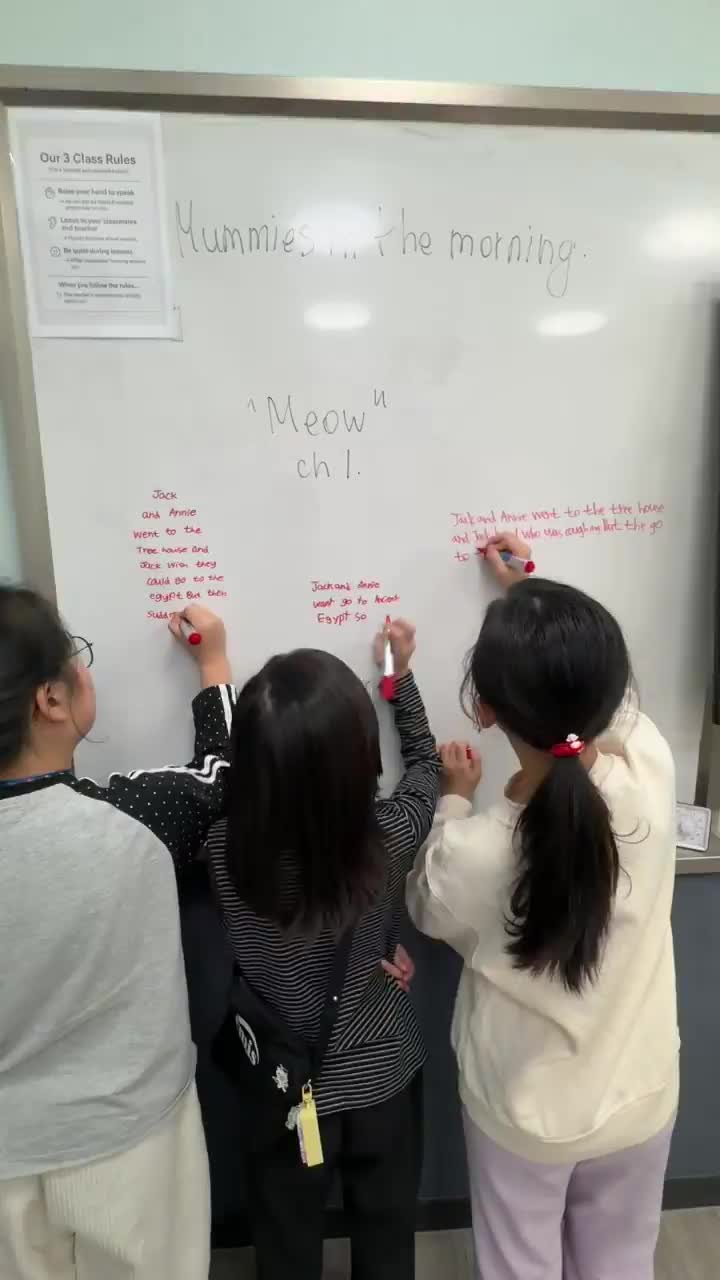 Our 3 Class Rules
Raise your hand to speak
Listen to your classmates
and teacher
Be quiet during lessons
When you follow the rules...
Mummies in the morning.
"Meow"
ch 1.
Jack
and Annie
went to the
Tree house and
Jack wish they
could go to the
egypt But then
sudd
Jack and Annie
want go to Ancient
Egypt so
Jack and Annie went to the tree house
and who was But the go
to